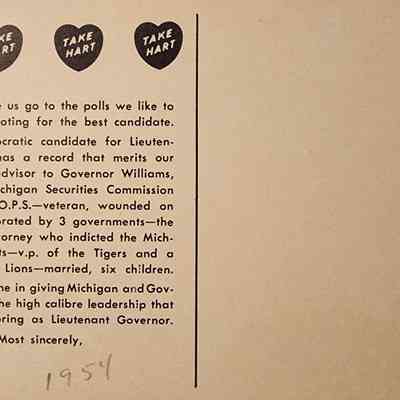 KE
RT
TAKE
HART
TAKE
HART
e us go to the polls we like to
oting for the best candidate.
ocratic candidate for Lieuten-
has a record that merits our
advisor to Governor Williams,
ichigan Securities Commission
O.P.S.—veteran, wounded on
orated by 3 governments—the
torney who indicted the Mich-
ts—v.p. of the Tigers and a
Lions—married, six children.
me in giving Michigan and Gov-
he high calibre leadership that
bring as Lieutenant Governor.
Most sincerely,
1954